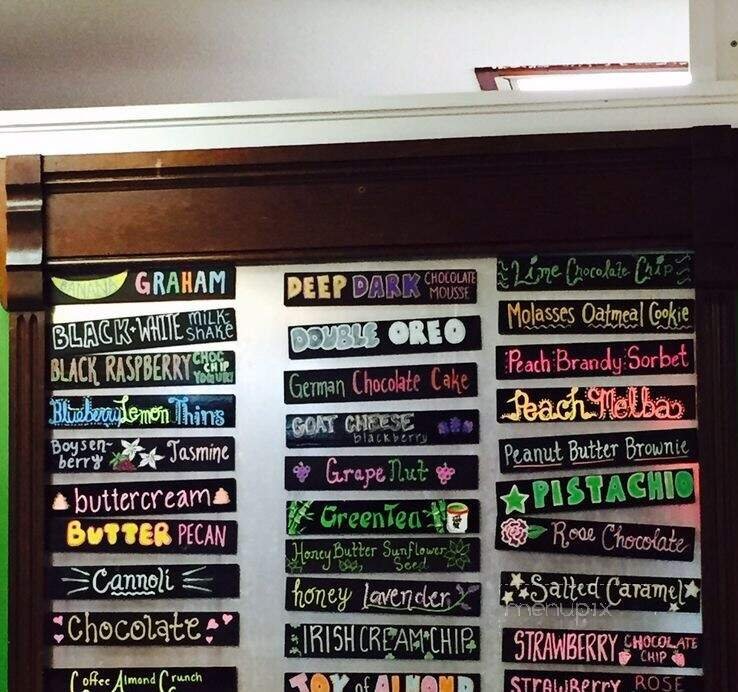 BANANA GRAHAM
BLACK + WHITE MILK-SHAKE
BLACK RASPBERRY CHOC CHIP YOGURT
Blueberry Lemon Thins
Boysen-berry Jasmine
buttercream
BUTTER PECAN
Cannoli
Chocolate
Coffee Almond Crunch
DEEP DARK CHOCOLATE MOUSSE
DOUBLE OREO
German Chocolate Cake
GOAT CHEESE blackberry
Grape Nut
Green Tea
Honey Butter Sunflower Seed
honey Lavender
IRISH CREAM CHIP
JOY of ALMOND
Lime Chocolate Chip
Molasses Oatmeal Cookie
Peach Brandy Sorbet
Peach Melba
Peanut Butter Brownie
PISTACHIO
Rose Chocolate
Salted Caramel
menupix
STRAWBERRY CHOCOLATE CHIP
STRAWBERRY ROSE